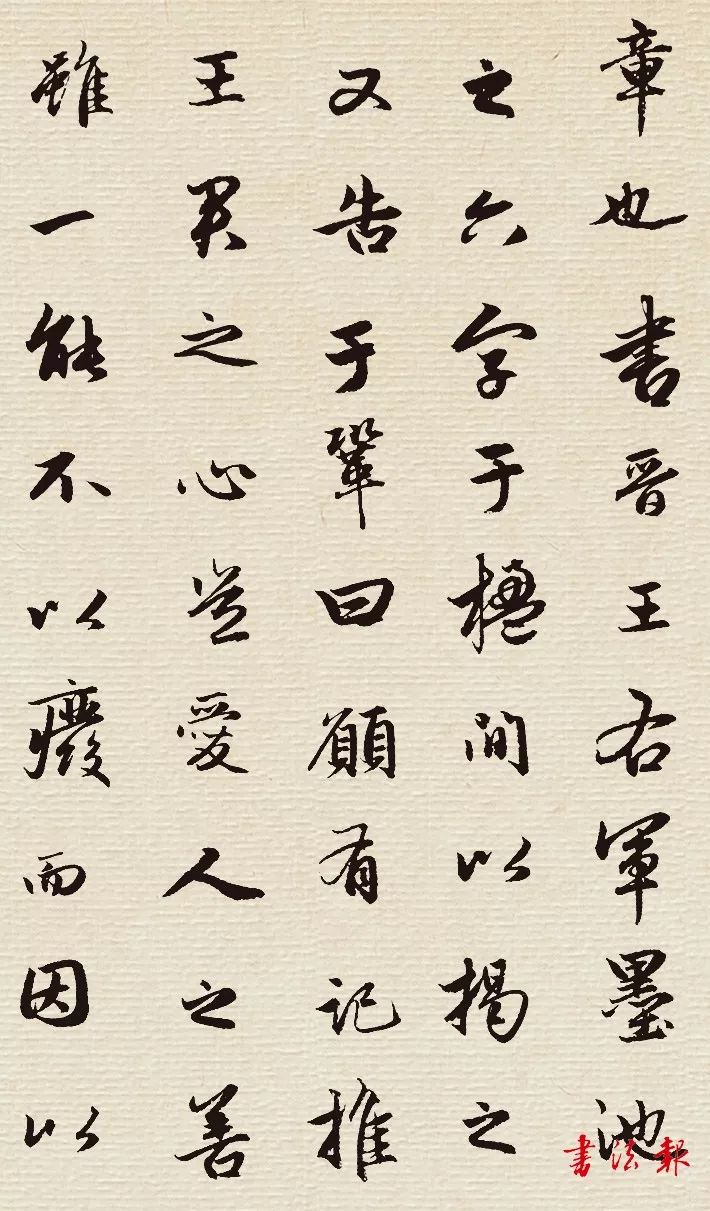 章也書晋王右軍墨池
之六字于楹間以揭之
又告于鞏曰願有記推
王君之心豈愛人之善
雖一能不以廢而因以
書法報